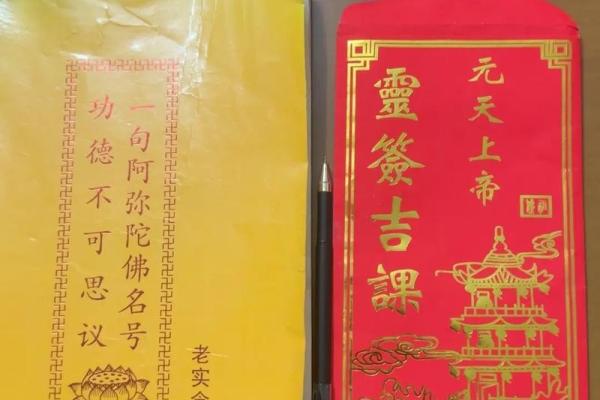 一句阿弥陀佛名号
功德不可思议
老实
元天上帝
靈簽吉課